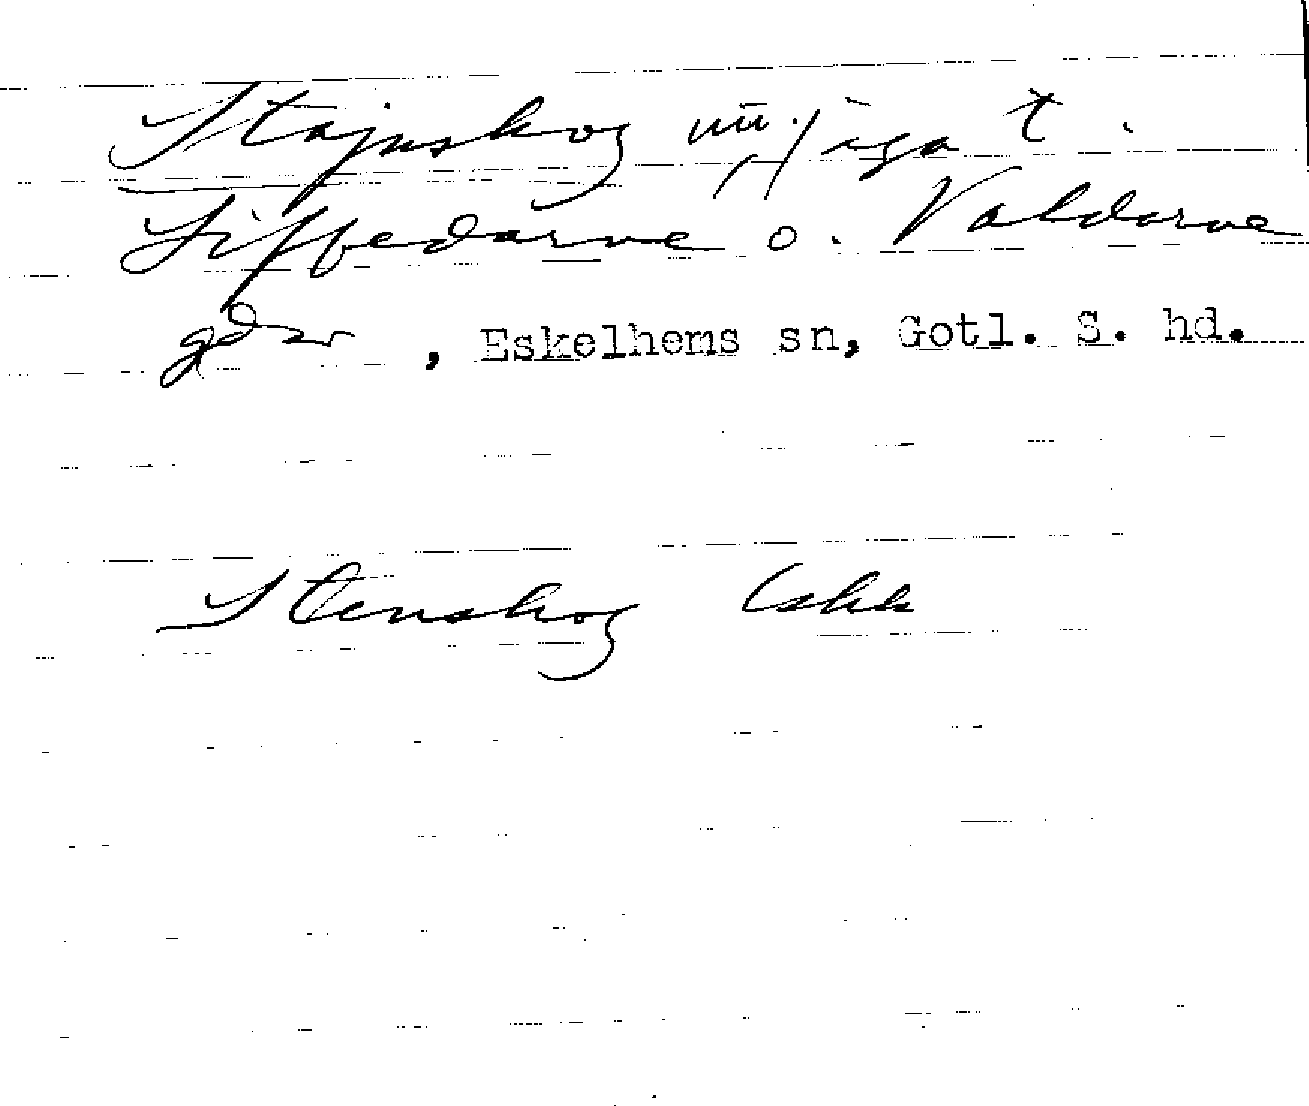 Stajnskog
Liffedarve o. Valdarve
gdar, Eskelhems sn, Gotl. S. hd.
Stenskog Eskh